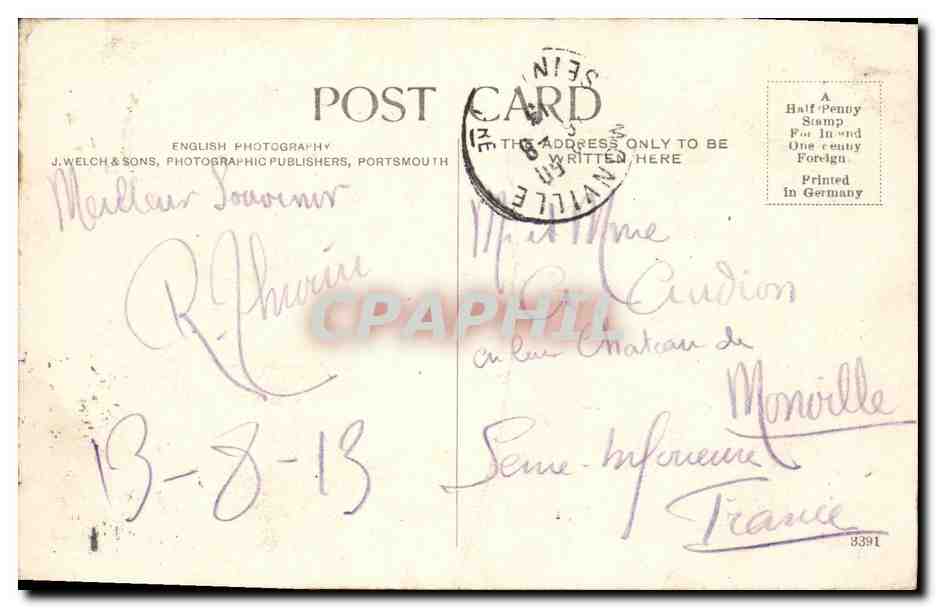 POST CARD
ENGLISH PHOTOGRAPHY
J. WELCH & SONS, PHOTOGRAPHIC PUBLISHERS, PORTSMOUTH
THE ADDRESS ONLY TO BE
WRITTEN HERE
A
Half Penny
Stamp
For Inland
One penny
Foreign.
Printed
in Germany
MONVILLE
SEINE
Meilleur Souvenir
13-8-13
Mr et Mme
en leur Chateau de
Monville
Seine-Inférieure
France
3391
CPAPHIL